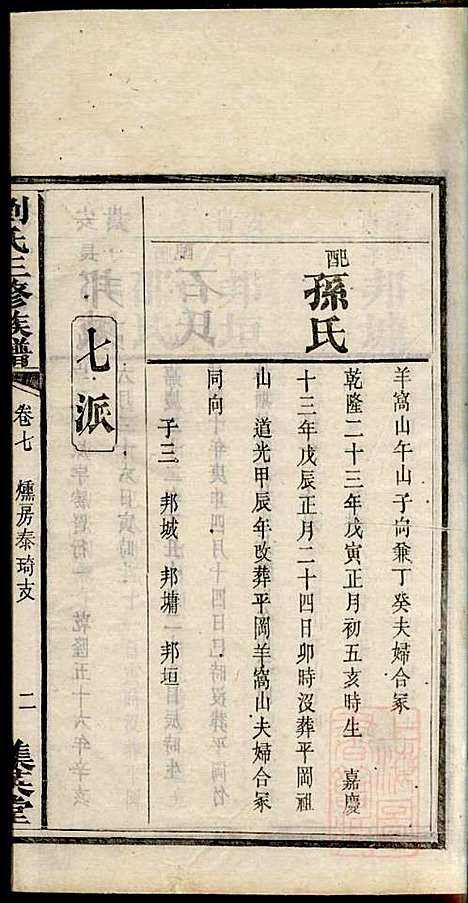 羊窩山午山子向兼丁癸夫婦合冢
配
孫氏
乾隆二十三年戊寅正月初五亥時生　嘉慶
十三年戊辰正月二十四日卯時沒葬平岡祖
山　道光甲辰年改葬平岡羊窩山夫婦合冢
同向
子三　邦城　邦墉　邦垣
七派
劉氏三修族譜
卷七　燻房泰琦支
二
集英堂